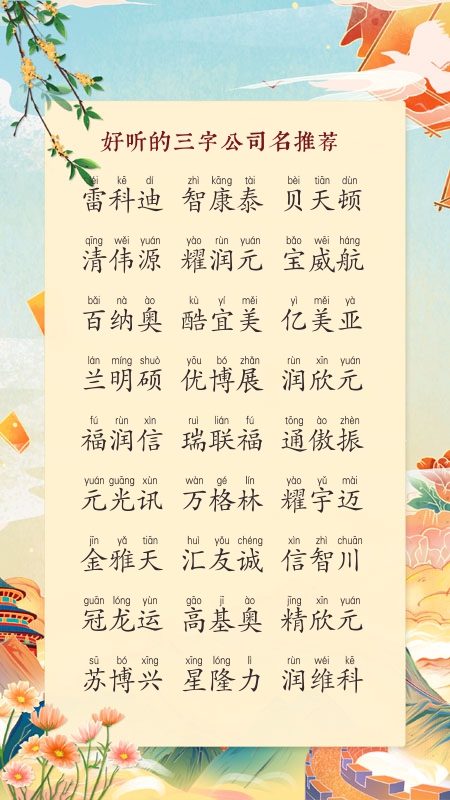 好听的三字公司名推荐
léi kē dí zhì kāng tài bèi tiān dùn
雷科迪 智康泰 贝天顿
qīng wěi yuán yào rùn yuán bǎo wēi háng
清伟源 耀润元 宝威航
bǎi nà ào kù yí měi yì měi yà
百纳奥 酷宜美 亿美亚
lán míng shuò yōu bó zhǎn rùn xīn yuán
兰明硕 优博展 润欣元
fú rùn xìn ruì lián fú tōng ào zhèn
福润信 瑞联福 通傲振
yuán guāng xùn wàn gé lín yào yǔ mài
元光讯 万格林 耀宇迈
jīn yǎ tiān huì yǒu chéng xìn zhì chuān
金雅天 汇友诚 信智川
guān lóng yùn gāo jī ào jīng xīn yuán
冠龙运 高基奥 精欣元
sū bó xīng xīng lóng lì rùn wéi kē
苏博兴 星隆力 润维科